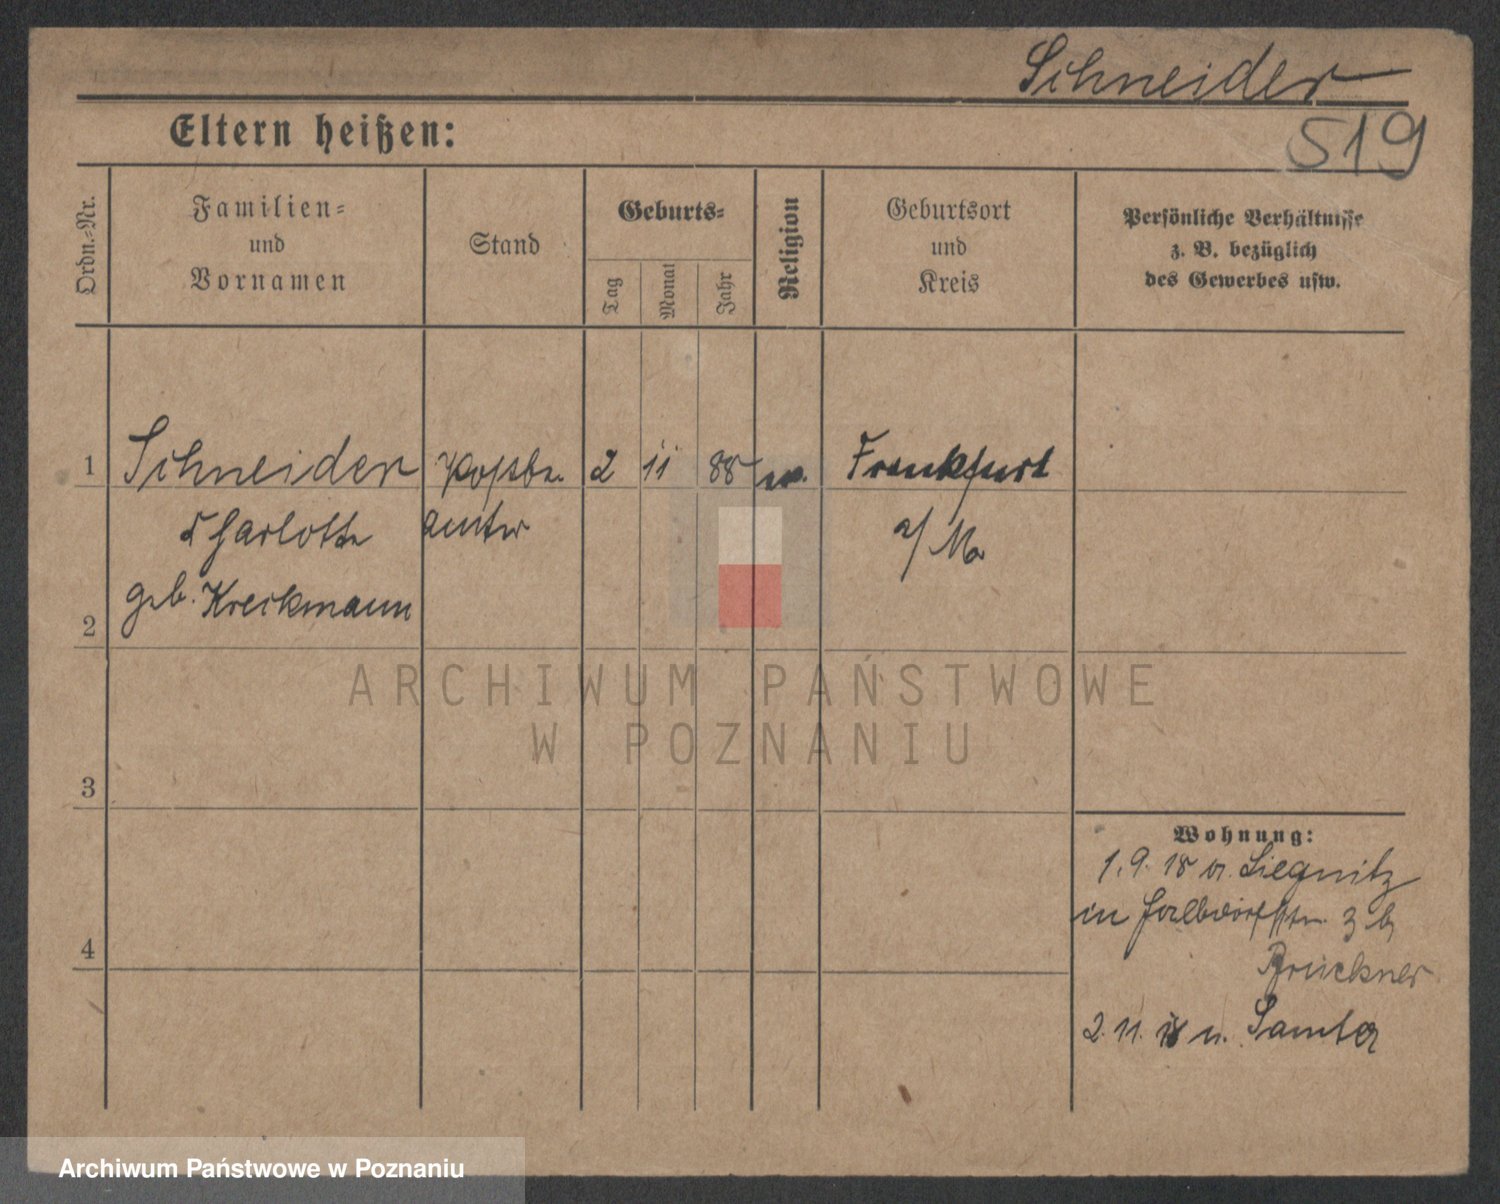 Schneider
519
Eltern heißen:
Ordn.-Nr.
Familien-
und
Vornamen
Stand
Geburts-
Tag
Monat
Jahr
Religion
Geburtsort
und
Kreis
Persönliche Verhältnisse
z. B. bezüglich
des Gewerbes usw.
1 Schneider Postbe 2 11 88 ev. Frankfurt
Charlotte amter a/ M
geb. Kreikmann
2
ARCHIWUM PAŃSTWOWE
W POZNANIU
3
Wohnung:
1.9.18 v. Liegnitz
in 3 b
Brückner
4
2.11.18 n. Samter
Archiwum Państwowe w Poznaniu